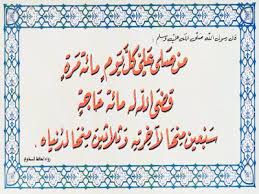 قال رسول الله صلى الله عليه وسلم :
من صلى علي كل يوم مائة مرة
قضى الله له مائة حاجة
سبعين منها لآخرته وثلاثين منها لدنياه .
رواه الحافظ السخاوي